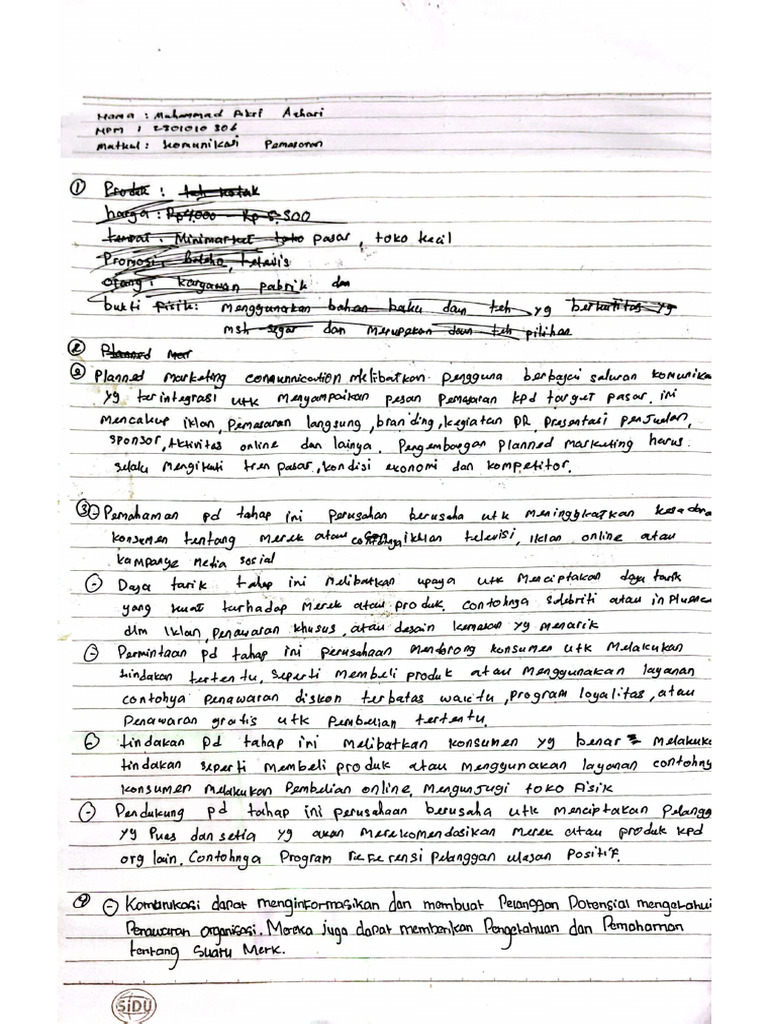 Nama : Muhammad Akri Azhari
NPM : 2301010306
Matkul : Komunikasi Pemasaran
① Produk : teh kotak
harga : Rp4,000 - Rp 5.500
tempat : Minimarket toko pasar, toko kecil
Promosi : , televisi
orang : karyawan pabrik dan
bukti fisik : menggunakan bahan baku dan teh yg berkualitas yg
msh segar dan merupakan daun teh pilihan
② Planned Mar
② Planned Marketing communication melibatkan pengguna berbagai saluran komunika
yg terintegrasi utk menyampaikan pesan pemasaran kpd target pasar. ini
mencakup iklan, pemasaran langsung, branding, kegiatan PR, presentasi penjualan,
sponsor, aktivitas online dan lainya. Pengembangan planned marketing harus
selalu mengikuti tren pasar, kondisi ekonomi dan kompetitor.
③ - Pemahaman pd tahap ini perusahan berusaha utk meningkatkan kesadara
konsumen tentang merek atau contohnya iklan televisi, iklan online atau
kampanye media sosial
- Daya tarik tahap ini melibatkan upaya utk menciptakan daya tarik
yang kuat terhadap merek atau produk, contohnya selebriti atau influence
dlm iklan, penawaran khusus, atau desain kemasan yg menarik
- Permintaan pd tahap ini perusahaan mendorong konsumen utk melakukan
tindakan tertentu, seperti membeli produk atau menggunakan layanan
contohya penawaran diskon terbatas waktu, program loyalitas, atau
penawaran gratis utk pembelian tertentu.
- tindakan pd tahap ini melibatkan konsumen yg benar2 melakuka
tindakan seperti membeli produk atau menggunakan layanan contohny
konsumen melakukan pembelian online, mengunjugi toko fisik
- Pendukung pd tahap ini perusahaan berusaha utk menciptakan pelangg
yg Puas dan setia yg akan merekomendasikan merek atau produk kpd
org lain. Contohnya Program referensi pelanggan ulasan positif.
④ - Komunikasi dapat menginformasikan dan membuat Pelanggan Potensial mengetahui
Penawaran organisasi. Mereka juga dapat memberikan Pengetahuan dan Pemahaman
tentang suatu Merk.
SiDU